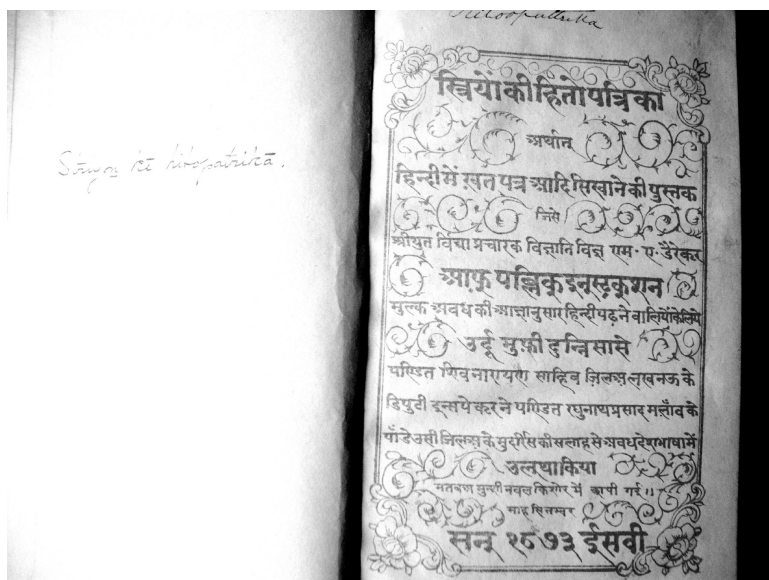 Striyon kī hitopatrikā.
Hitoopattrika
स्त्रियों की हितोपत्रिका
अर्थात
हिन्दी में ख़त पत्र आदि सिखाने की पुस्तक
जिसे
श्रीयुत विद्या प्रचारक विज्ञाति विज्ञ एम॰ ए॰ डैरेकर
आफ़ पब्लिक् इनस्ट्रक्शन
मुल्क अवध की आज्ञानुसार हिन्दी पढ़ने वालियों के लिये
उर्दू मुफ़ी दुन्निसा से
पण्डित शिव नारायण साहिब ज़िलअ लखनऊ के
डिपुटी इन्सपेकर ने पण्डित रघुनाथ प्रसाद मलाँव के
पाँडे उसी ज़िलअ के मुदर्रिस की सलाह से अवध देश भाषा में
उल्था किया
मतबअ मुन्शी नवल किशोर में छापी गई॥
माह सितम्बर
सन् १८७३ ईसवी